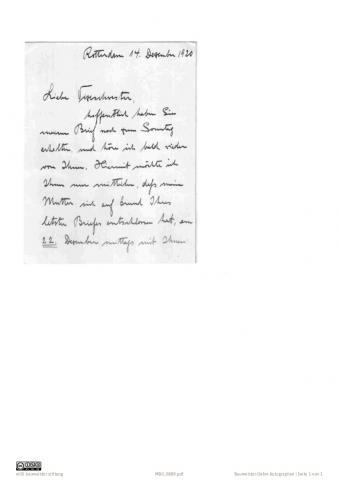 Rotterdam 14. Dezember 1920
Liebe
hoffentlich haben Sie
meinen Brief noch zum Sonntag
erhalten und höre ich bald wieder
von Ihnen. Hiermit möchte ich
Ihnen nur mitteilen, dass meine
Mutter sich auf Grund Ihres
letzten Briefes entschlossen hat, am
22. Dezember mittags mit Ihnen
willi baumeister stiftung
Baumeister-Gehm Autographen | Seite 1 von 1